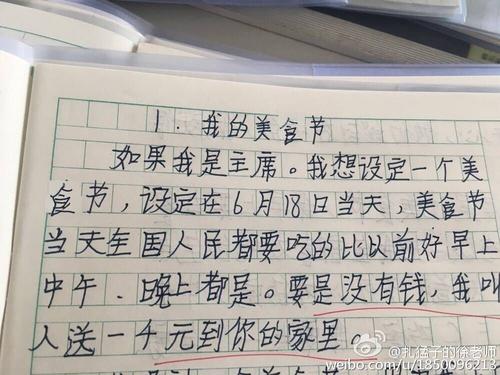 1. 我的美食节
如果我是主席。我想设定一个美
食节，设定在6月18日当天，美食节
当天全国人民都要吃的比以前好早上
中午、晚上都是。要是没有钱，我叫
人送一千元到你的家里。
@扎猛子的徐老师
weibo.com/u/1850096213